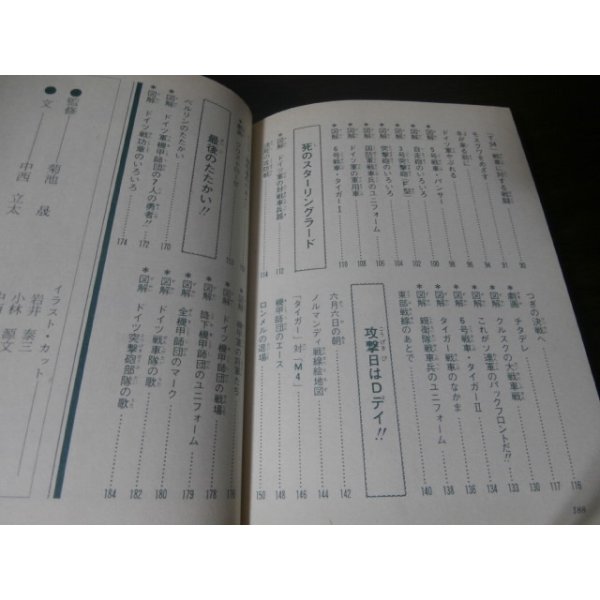 「T34」戦車に対する戦闘 90
モスクワをめざす 91
ドイツ軍やぶれる 96
＊図解 5号戦車・パンサー 98
＊図解 自走砲のいろいろ 100
＊図解 3号突撃砲「F型」 102
＊図解 突撃砲のいろいろ 104
＊図解 国防軍戦車兵のユニフォーム 106
＊図解 ドイツ軍の軍用車 108
＊図解 6号戦車・タイガーⅠ 110
死のスターリングラード
＊図解 ドイツ軍の対戦車兵器 112
114
つぎの決戦へ 116
チタデレ 117
＊劇画 クルスクの大戦車戦 130
＊図解 これがソ連軍のパックフロントだ!! 133
＊図解 6号戦車・タイガーⅡ 134
＊図解 タイガー戦車のなかま 136
＊図解 親衛隊戦車兵のユニフォーム 138
東部戦線のあとで 140
攻撃日はDデイ!!
こうげきび
六月六日の朝 142
ノルマンディ戦線絵地図 144
「タイガー」対「M4」 146
機甲師団のエース 148
ロンメルの退場 150
188
最後のたたかい!!
ベルリンのたたかい 170
＊図解 ドイツ軍機甲師団の7人の勇者!! 172
＊図解 ドイツ戦功章のいろいろ 174
＊図解 ドイツ機甲師団の戦場 178
＊図解 降下機甲師団のユニフォーム 179
＊図解 全機甲師団のマーク 180
＊図解 ドイツ戦車隊の歌 182
＊図解 ドイツ突撃砲部隊の歌 184
●監修 菊池 晟
●文 中西立太
イラスト・カット
岩井泰三
小林源文